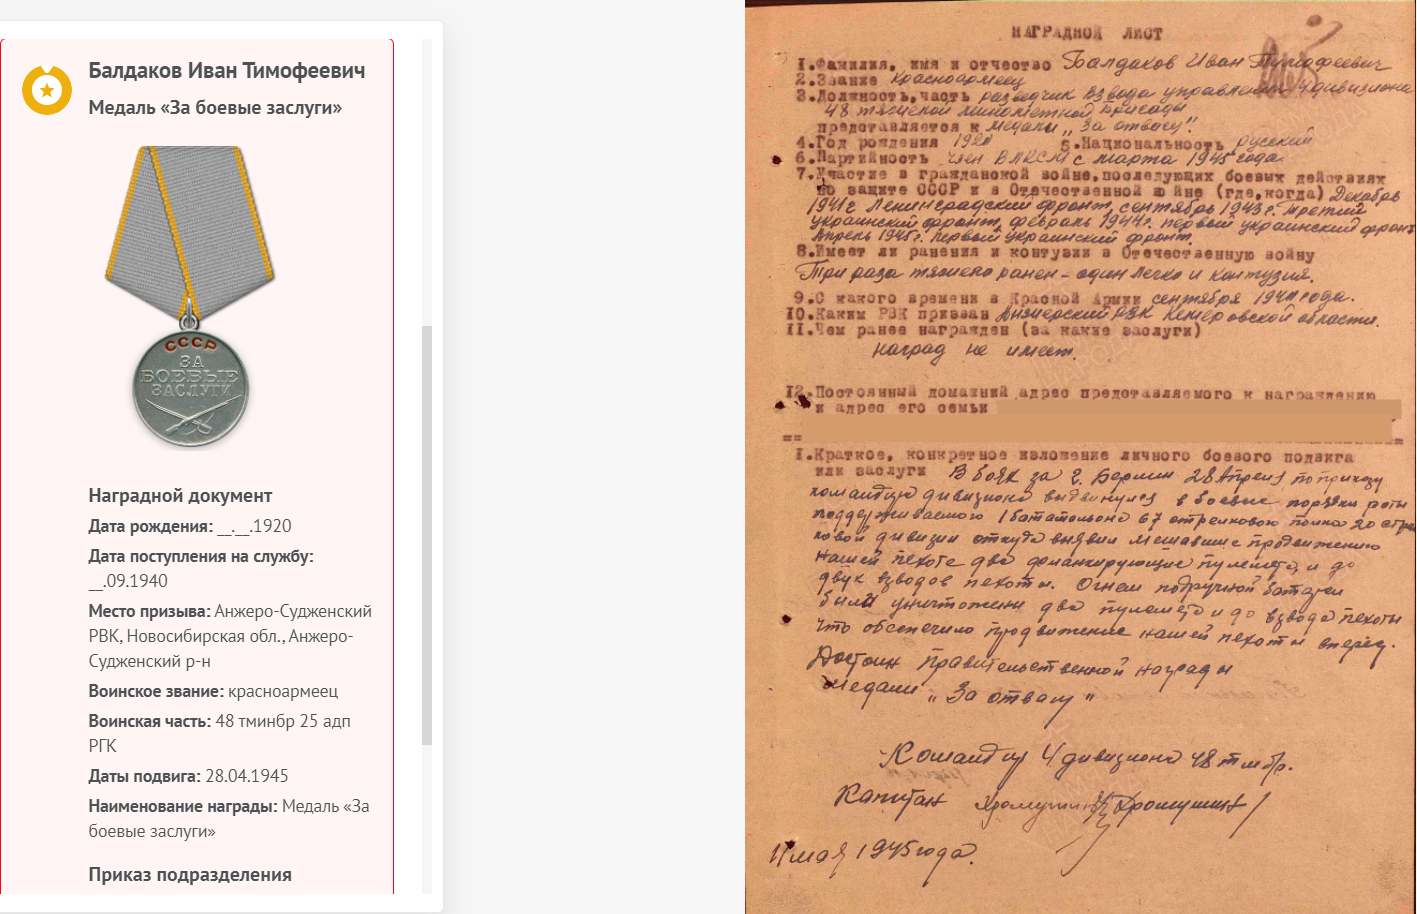 Балдаков Иван Тимофеевич
Медаль «За боевые заслуги»
СССР
ЗА
БОЕВЫЕ
ЗАСЛУГИ
Наградной документ
Дата рождения: __.__.1920
Дата поступления на службу:
__.09.1940
Место призыва: Анжеро-Судженский
РВК, Новосибирская обл., Анжеро-
Судженский р-н
Воинское звание: красноармеец
Воинская часть: 48 тминбр 25 адп
РГК
Даты подвига: 28.04.1945
Наименование награды: Медаль «За
боевые заслуги»
Приказ подразделения
НАГРАДНОЙ ЛИСТ
1.Фамилия, имя и отчество Балдаков Иван Тимофеевич
2.Звание Красноармеец
3.Должность,часть разведчик взвода управления 4 дивизиона
48 тяжелой минометной бригады
представляется к медали „За отвагу".
4.Год рождения 5.Национальность русский
6.Партийность член ВЛКСМ с марта 1945 года.
7.Участие в гражданской войне,последующих боевых действиях
по защите СССР и в Отечественной войне (где,когда) Декабрь
1941г Ленинградский фронт, сентябрь 1943г. Третий
украинский фронт, февраль 1944г. первый украинский фронт
Апрель 1945г. Первый украинский фронт.
8.Имеет ли ранения и контузии в Отечественную войну
Три раза тяжело ранен - один легко и контузия.
9.С какого времени в Красной Армии сентября 1940 года.
10.Каким РВК призван Анжерский РВК Кемеровской области.
11.Чем ранее награжден (за какие заслуги)
наград не имеет.
12.Постоянный домашний адрес представляемого к награждению
и адрес его семьи
1.Краткое, конкретное изложение личного боевого подвига
или заслуги В боях за г. Берлин 28 Апреля по приказу
командира дивизиона выдвинулся в боевые порядки роты
поддерживаемого 1 батальона 67 стрелкового полка 20 стрел
ковой дивизии откуда выявил мешавшие продвижению
нашей пехоте два фланкирующие пулемета и до
двух взводов пехоты. Огнем подручной батареи
были уничтожены два пулемета и до взвода пехоты
что обеспечило продвижение нашей пехоты вперед.
Достоин правительственной награды
медали „За отвагу"
Командир 4 дивизиона 48 тмбр.
Капитан
11 мая 1945 года.